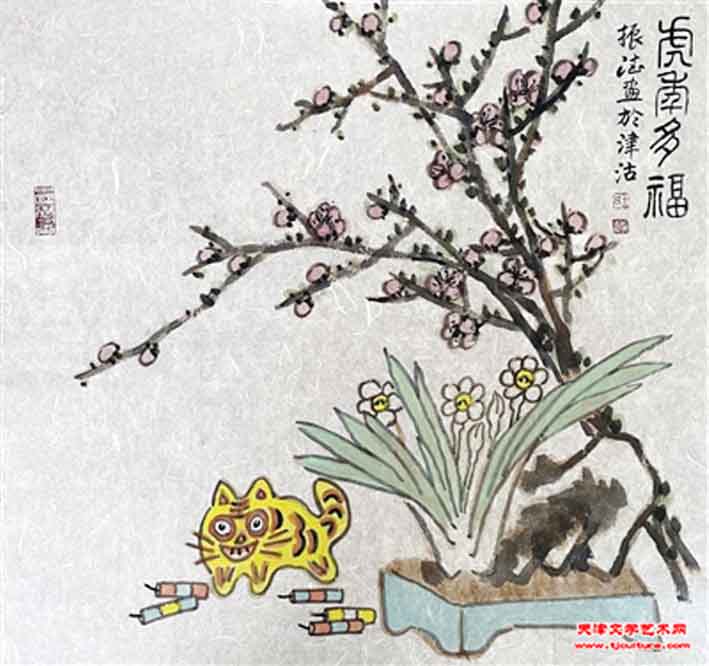 虎年多福
振法画於津沽
天津文学艺术网
www.tjculture.com